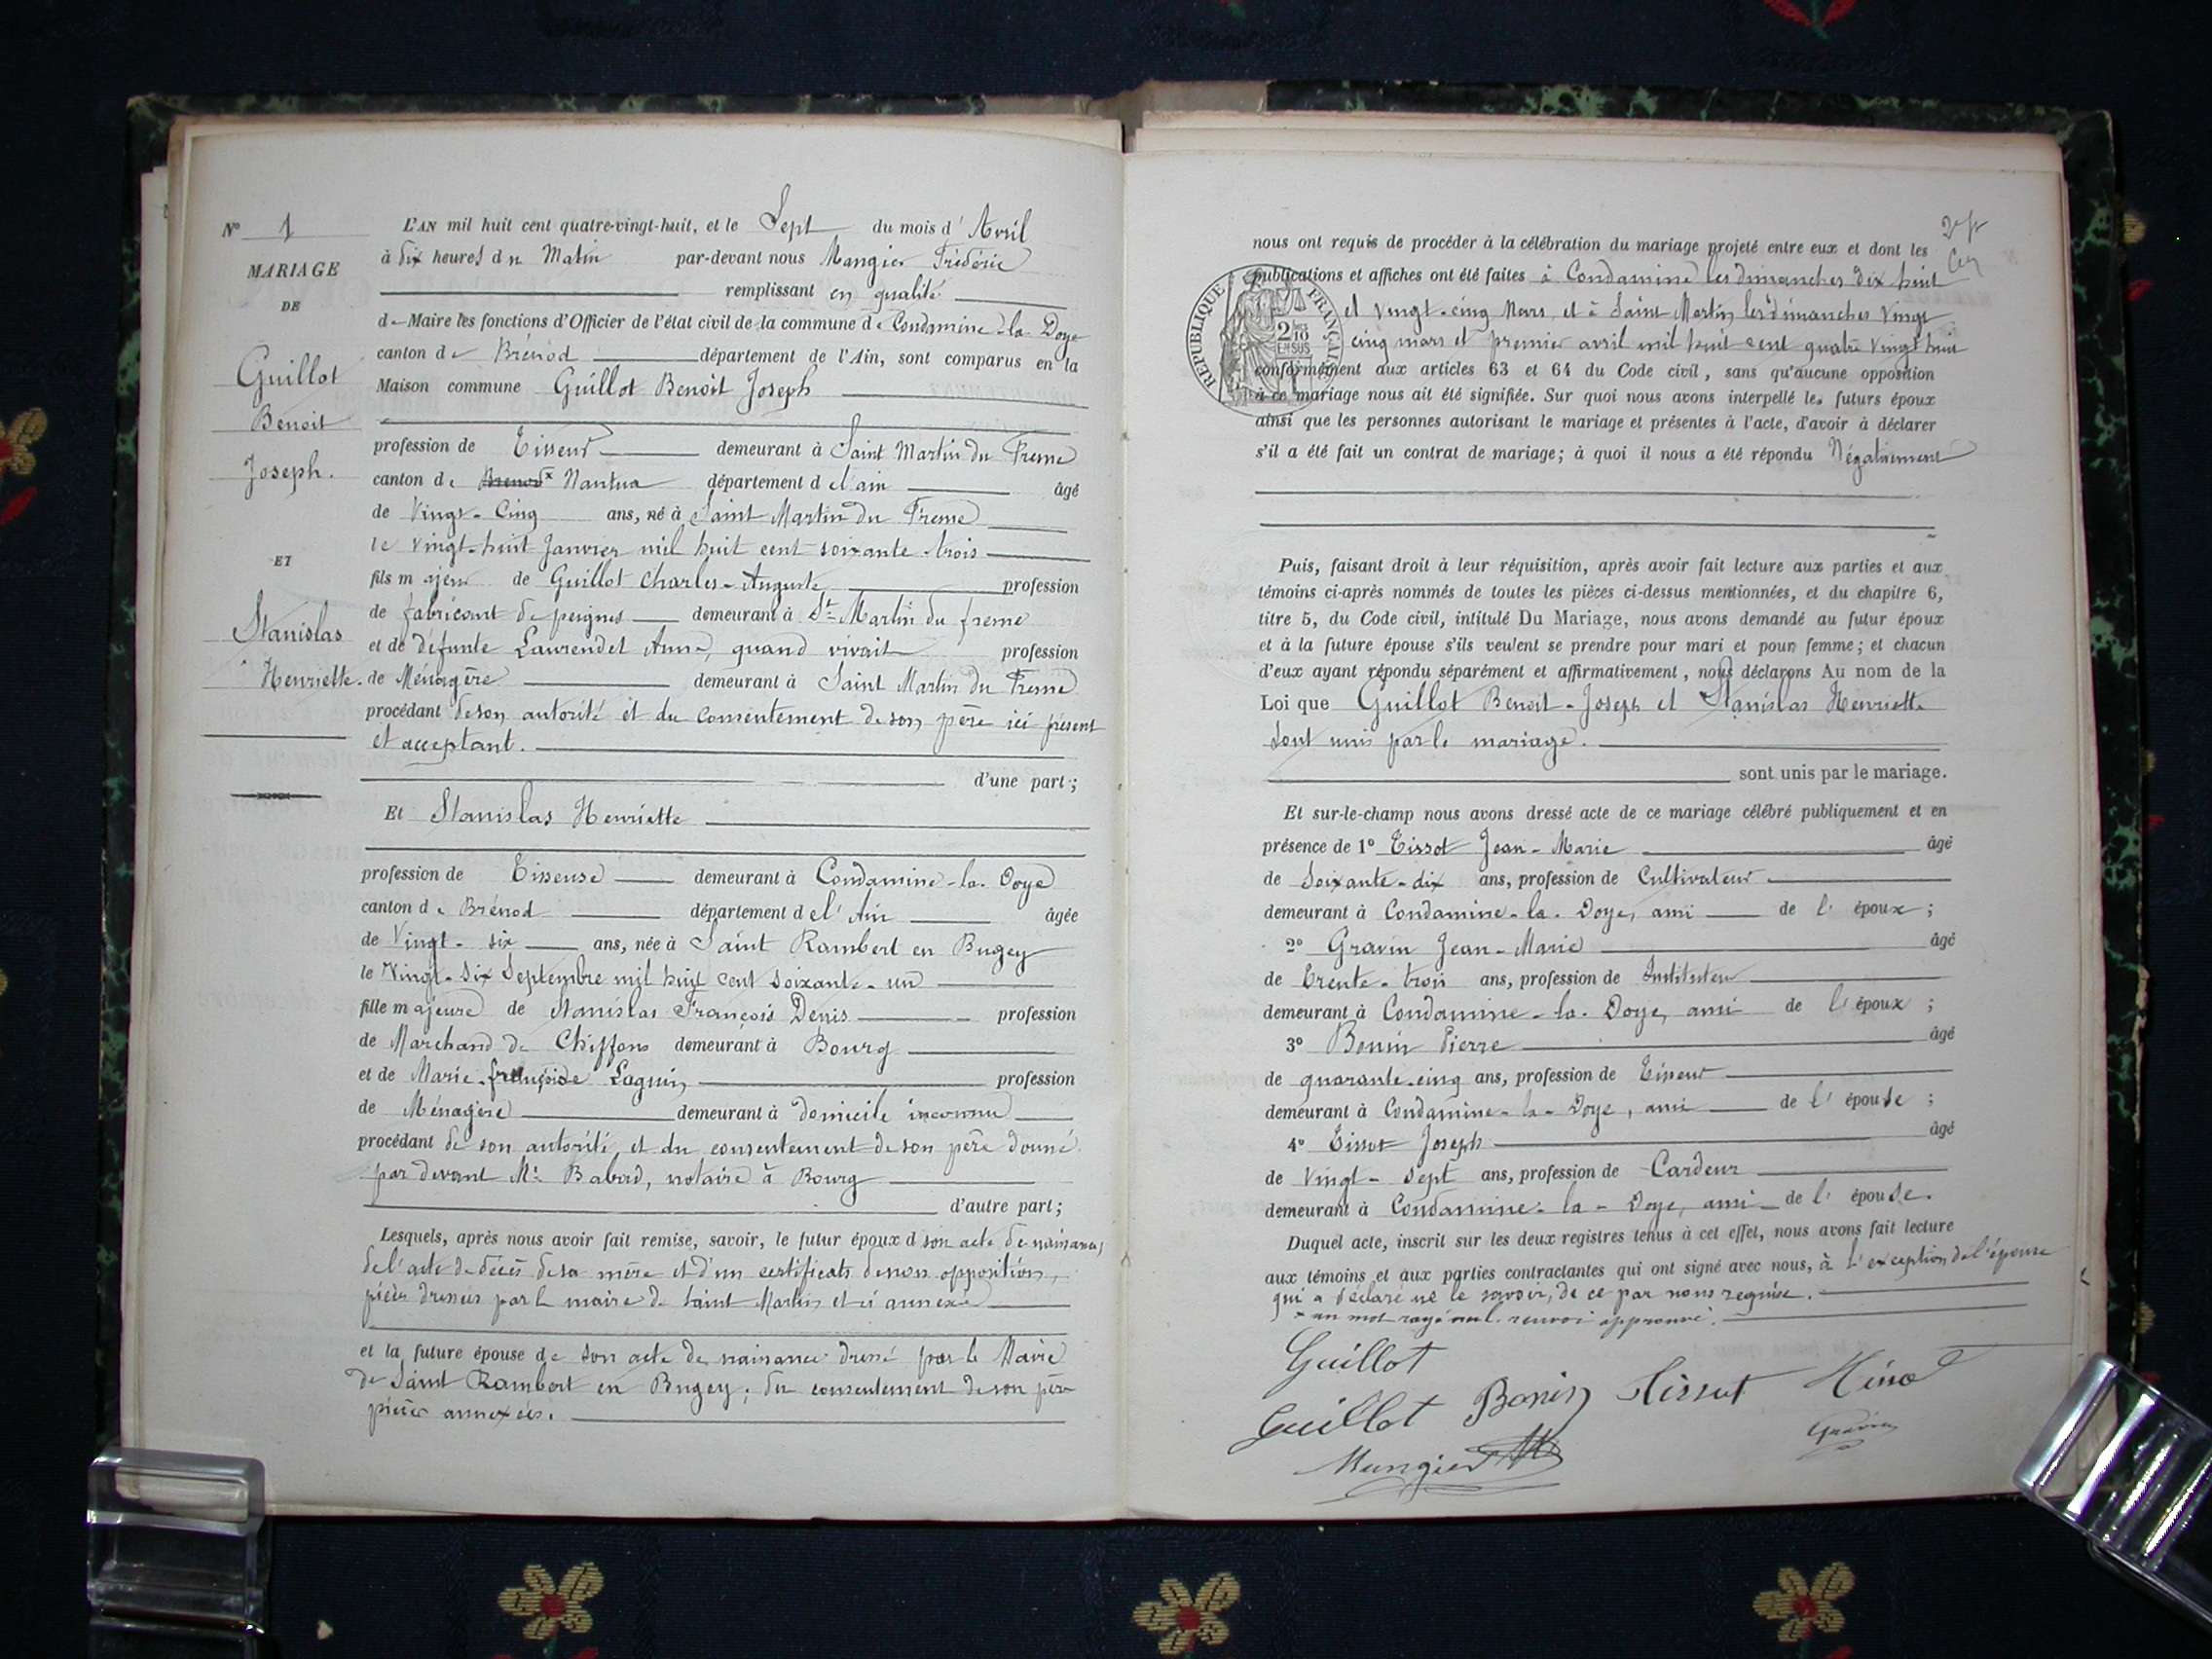 N° 1
MARIAGE
DE
Guillot
Benoit
Joseph.
ET
Stanislas
Henriette.
L'AN mil huit cent quatre-vingt-huit, et le Sept du mois d'Avril
à dix heures du Matin par-devant nous Mangier Frédéric
remplissant en qualité
de Maire les fonctions d'Officier de l'état civil de la commune de Condamine-la-Doye
canton de Brénod département de l'Ain, sont comparus en la
Maison commune Guillot Benoit Joseph
profession de Tisseur demeurant à Saint Martin du Fresne
canton de Brenod x Nantua département de l'ain âgé
de Vingt-Cinq ans, né à Saint Martin du Fresne
le vingt-huit Janvier mil huit cent soixante-trois
fils majeur de Guillot Charles-Auguste profession
de fabricant de peignes demeurant à St Martin du fresne
et de défunte Laurendet Anne, quand vivait profession
de Ménagère demeurant à Saint Martin du Fresne
procédant de son autorité et du consentement de son père ici présent
et acceptant.
d'une part;
Et Stanislas Henriette
profession de Tisseuse demeurant à Condamine-la-Doye
canton de Brénod département de l'Ain âgée
de Vingt-six ans, née à Saint Rambert en Bugey
le Vingt-Six Septembre mil huit cent soixante-un
fille majeure de Stanislas François Denis profession
de Marchand de Chiffons demeurant à Bourg
et de Marie-françoise Laguin profession
de Ménagère demeurant à domicile inconnu
procédant de son autorité et du consentement de son père donné
par devant Me Babad, notaire à Bourg
d'autre part;
Lesquels, après nous avoir fait remise, savoir, le futur époux d son acte de naissance,
de l'acte de décès de sa mère et d'un certificats de non opposition,
pièces dressées par le maire de Saint Martin et ci annexé
et la future épouse de son acte de naissance dressé par le Maire
de Saint Rambert en Bugey; du consentement de son père
pièces annexées.
2e f
nous ont requis de procéder à la célébration du mariage projeté entre eux et dont les
publications et affiches ont été faites à Condamine les dimanches dix huit
et vingt-cinq Mars et à Saint Martin les dimanches vingt
cinq mars et premier avril mil huit cent quatre vingt huit
RÉPUBLIQUE FRANÇAISE
2/10 EN SUS
conformément aux articles 63 et 64 du Code civil, sans qu'aucune opposition
à ce mariage nous ait été signifiée. Sur quoi nous avons interpellé les futurs époux
ainsi que les personnes autorisant le mariage et présentes à l'acte, d'avoir à déclarer
s'il a été fait un contrat de mariage; à quoi il nous a été répondu Négativement
Puis, faisant droit à leur réquisition, après avoir fait lecture aux parties et aux
témoins ci-après nommés de toutes les pièces ci-dessus mentionnées, et du chapitre 6,
titre 5, du Code civil, intitulé Du Mariage, nous avons demandé au futur époux
et à la future épouse s'ils veulent se prendre pour mari et pour femme; et chacun
d'eux ayant répondu séparément et affirmativement, nous déclarons Au nom de la
Loi que Guillot Benoit-Joseph et Stanislas Henriette
sont unis par le mariage.
sont unis par le mariage.
Et sur-le-champ nous avons dressé acte de ce mariage célébré publiquement et en
présence de 1° Tissot Jean-Marie âgé
de Soixante-dix ans, profession de Cultivateur
demeurant à Condamine-la-Doye, ami de l'époux;
2° Gravin Jean-Marie âgé
de trente-trois ans, profession de Instituteur
demeurant à Condamine-la-Doye, ami de l'époux;
3° Bonin Pierre âgé
de quarante-cinq ans, profession de Tisseur
demeurant à Condamine-la-Doye, ami de l'épouse;
4° Tissot Joseph âgé
de Vingt-Sept ans, profession de Cardeur
demeurant à Condamine-la-Doye, ami de l'épouse.
Duquel acte, inscrit sur les deux registres tenus à cet effet, nous avons fait lecture
aux témoins et aux parties contractantes qui ont signé avec nous, à l'exception de l'épouse
qui a déclaré ne le savoir, de ce par nous requise.
x un mot rayé nul. renvoi approuvé.
Guillot
Guillot Bonin Tissot
Gravin
Mangier